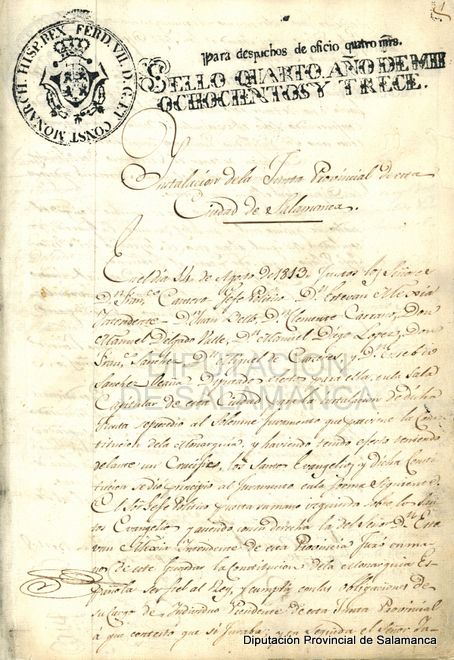 FERD. VII. D. G. ET CONST. MONARCH. HISP. REX.
Para despachos de oficio quatro mrs.
SELLO QUARTO, AÑO DE MIL
OCHOCIENTOS Y TRECE.
Instalacion de la Junta Provincial de esta
Ciudad de Salamanca.
En el dia 14 de Agosto de 1813. Juntos los Señores
Dn. Fran.co Cantero Jefe Politico - Dn. Estevan Mexia
Intendente - Dn. Juan Bello, Dn. Clemente Carrasco, Don
Manuel Delgado Valle, Dn. Manuel Diego Lopez, Don
Fran.co Sanchez - Dn. Miguel de Caceres, y Dn. Eusebio
Sanchez Ileana, Diputados electos para ella, en la Sala
Capitular de esta Ciudad para la instalacion de dicha
Junta se procedio al Solemne Juramento que previene la Cons
titucion de la Monarquia, y haviendo tenido efecto teniendo
delante un Crucifixo, los Santos Evangelios, y dicha Consti
tucion se dio principio al Juramento en la forma siguiente.
El Sor. Jefe Politico puesta su mano sobre los Santos
Evangelios y asiendo con su derecha la del Señor Dn. Este
van Mexia Intendente de esta Provincia Juró en ma
nos de este guardar la Constitucion de la Monarquia Es
pañola ser fiel al Rey, y cumplir con las obligaciones de
su cargo de Individuo Presidente de esta Junta Provincial
a que contestó que si Juraba; y en seguida el Señor In-
DIPUTACIÓN
DE SALAMANCA
Diputación Provincial de Salamanca